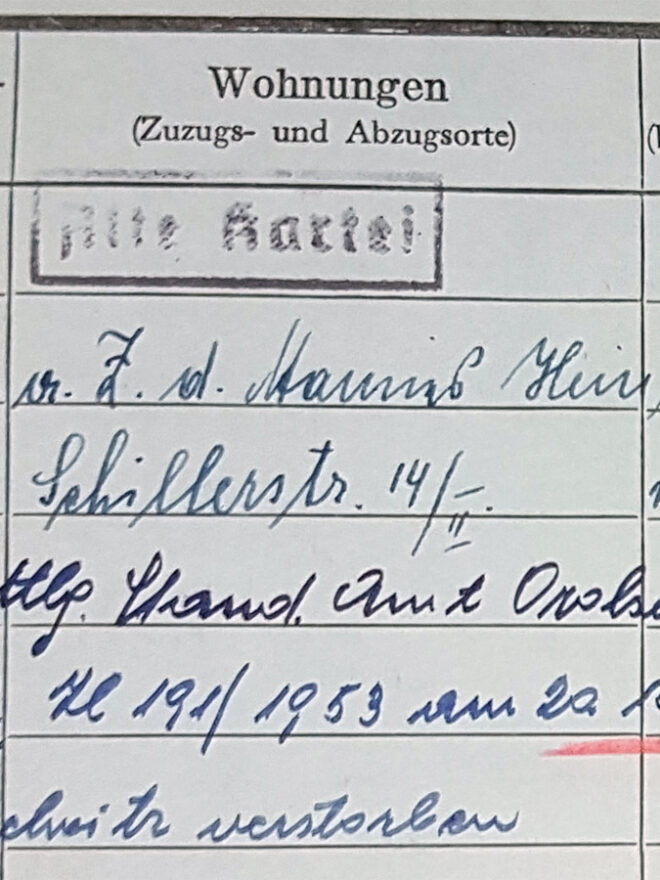 Wohnungen
(Zuzugs- und Abzugsorte)
Alte Kartei
v. Z. d. Mannes
Schillerstr. 14/II.
Stand. Amt
Zl 191/1953 am
verstorben